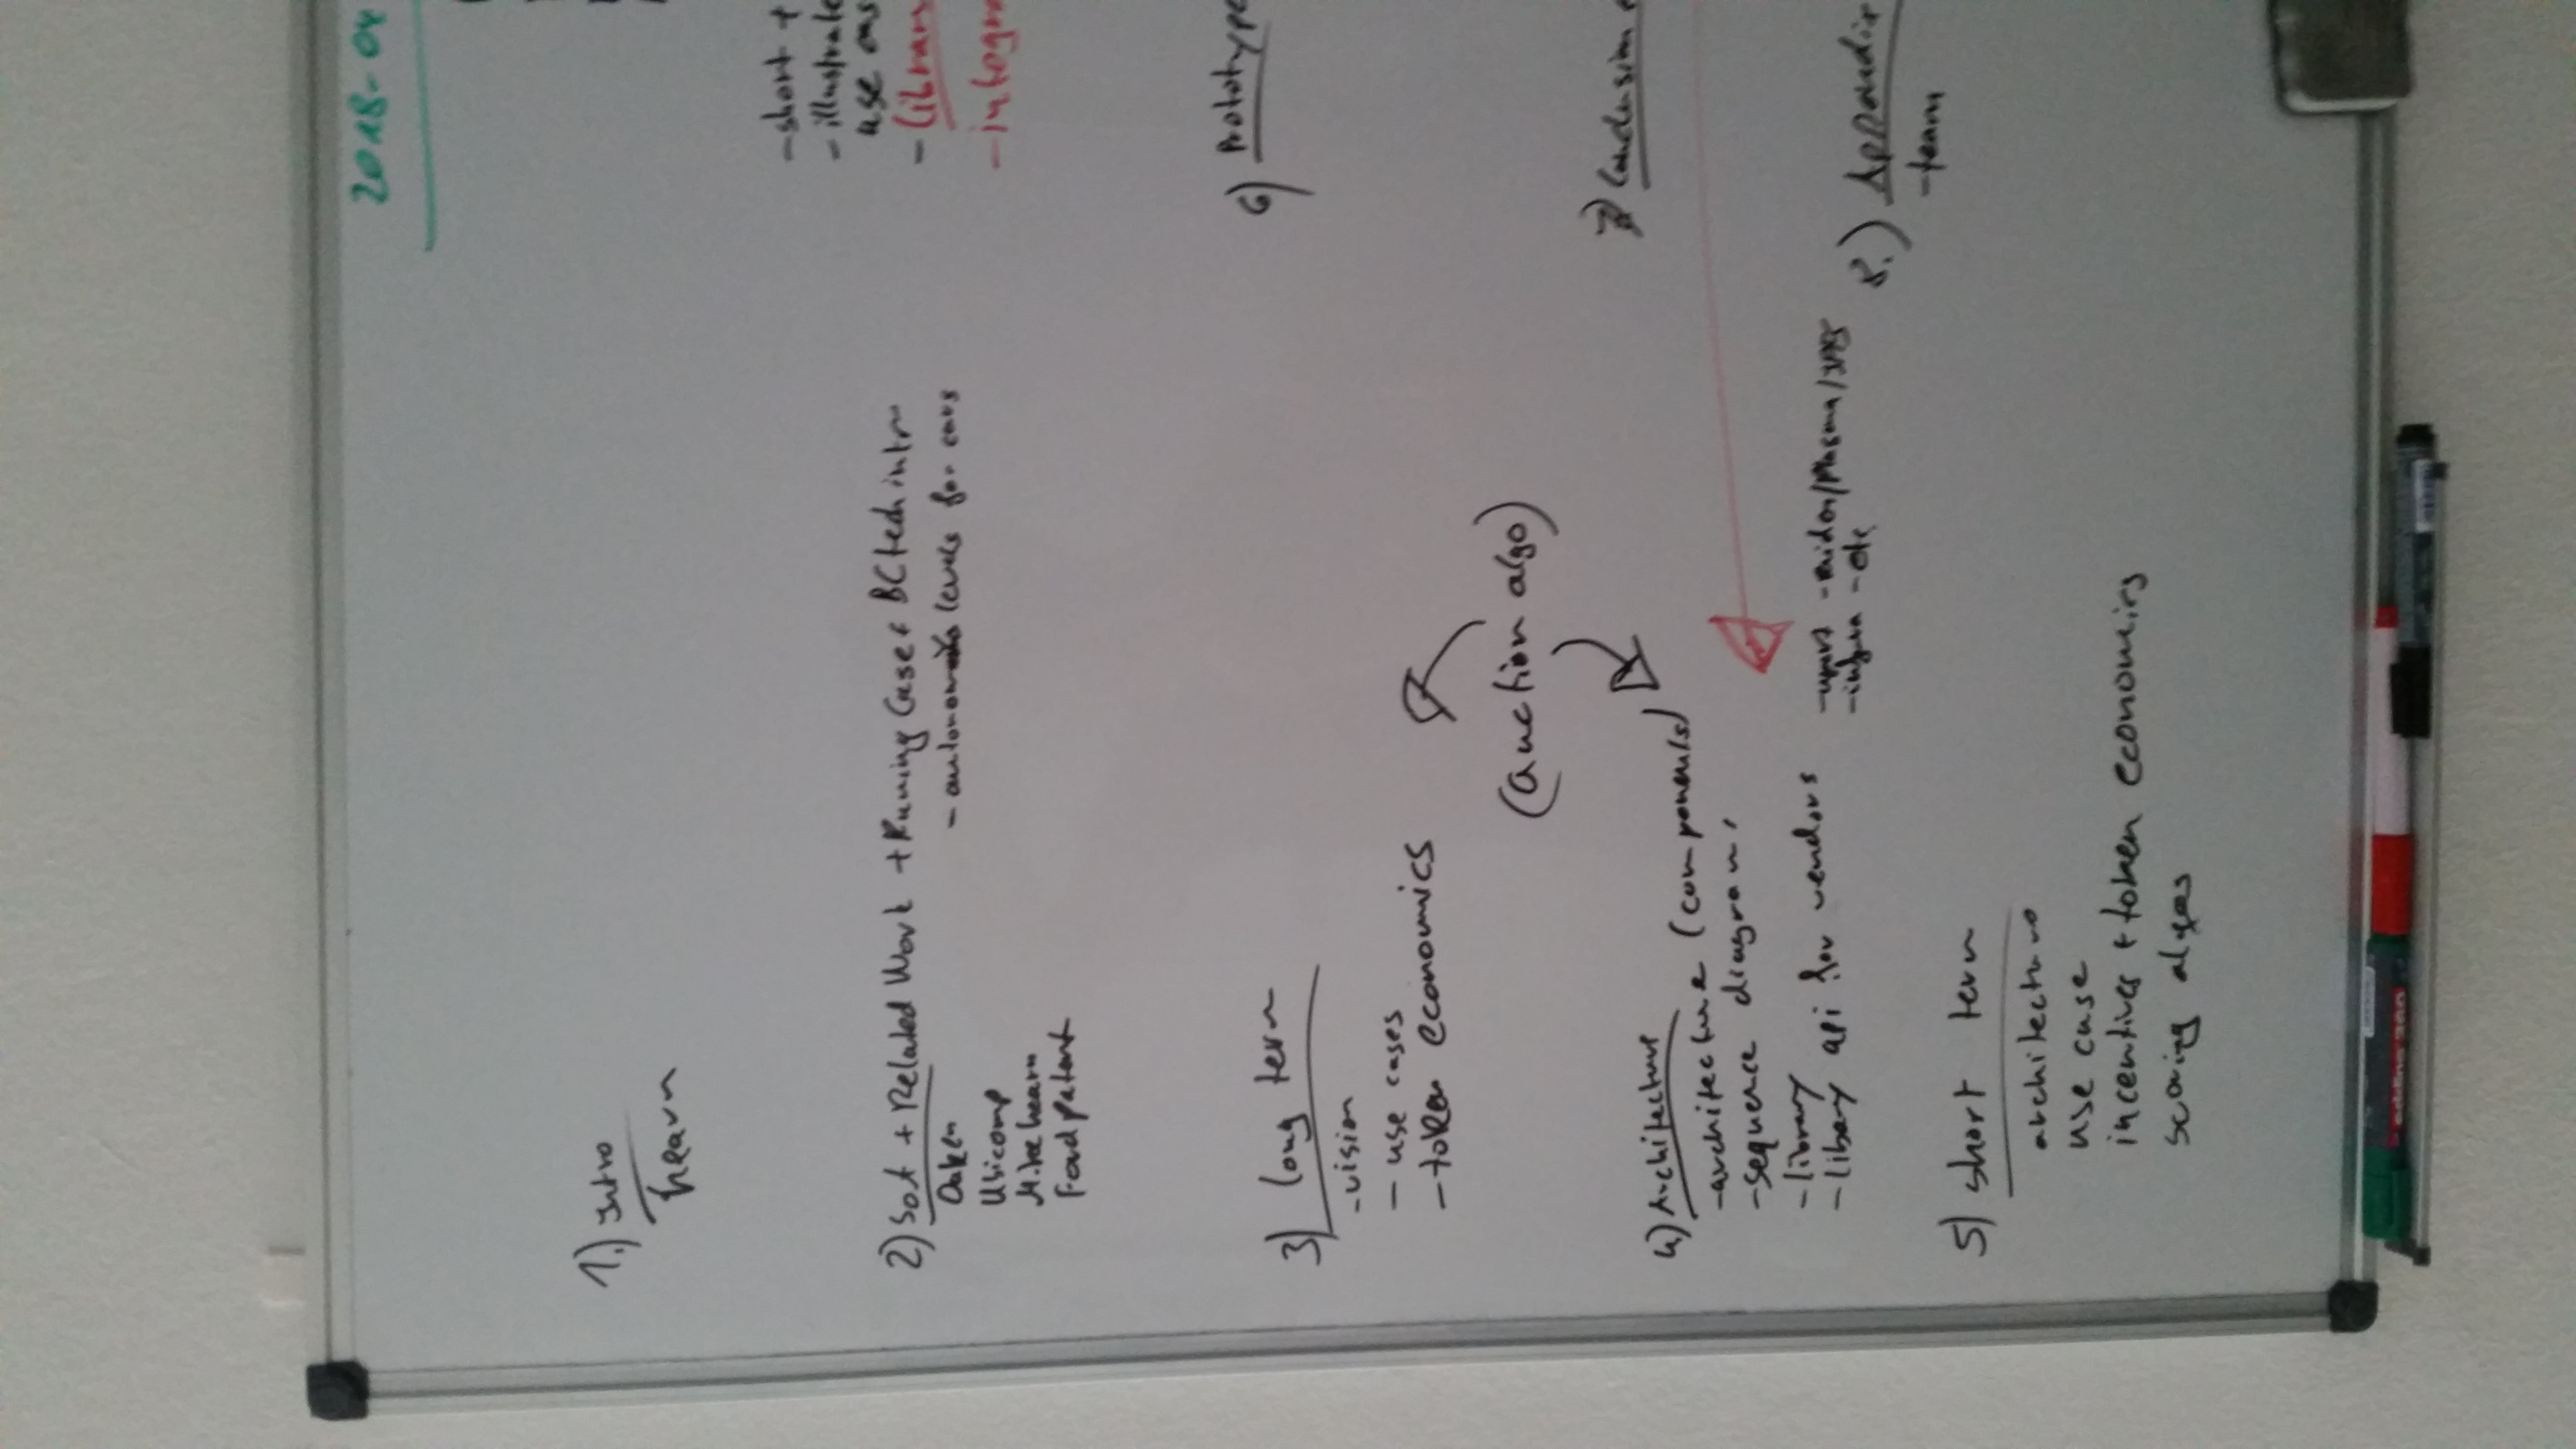 2018-04
1.) Intro
hearn
2) SotA + Related Work + Running Case + BC tech intro
Oaken
- autonomous levels for cars
Ubicomp
Mike hearn
Ford patent
3) long term
- vision
- use cases
- token economics
(auction algo)
4.) Architecture
- architecture (components)
- sequence diagrams
- library
- libary api for vendors
- uport - raiden/Plasma/IPFS
- infura - etc
5) short term
architecture
use case
incentives + token economics
scoring algos
- short +
- illustrate
use cas
- library
- integra
6) Prototype
7) Conclusion
8.) Appendix
- team
edding 360